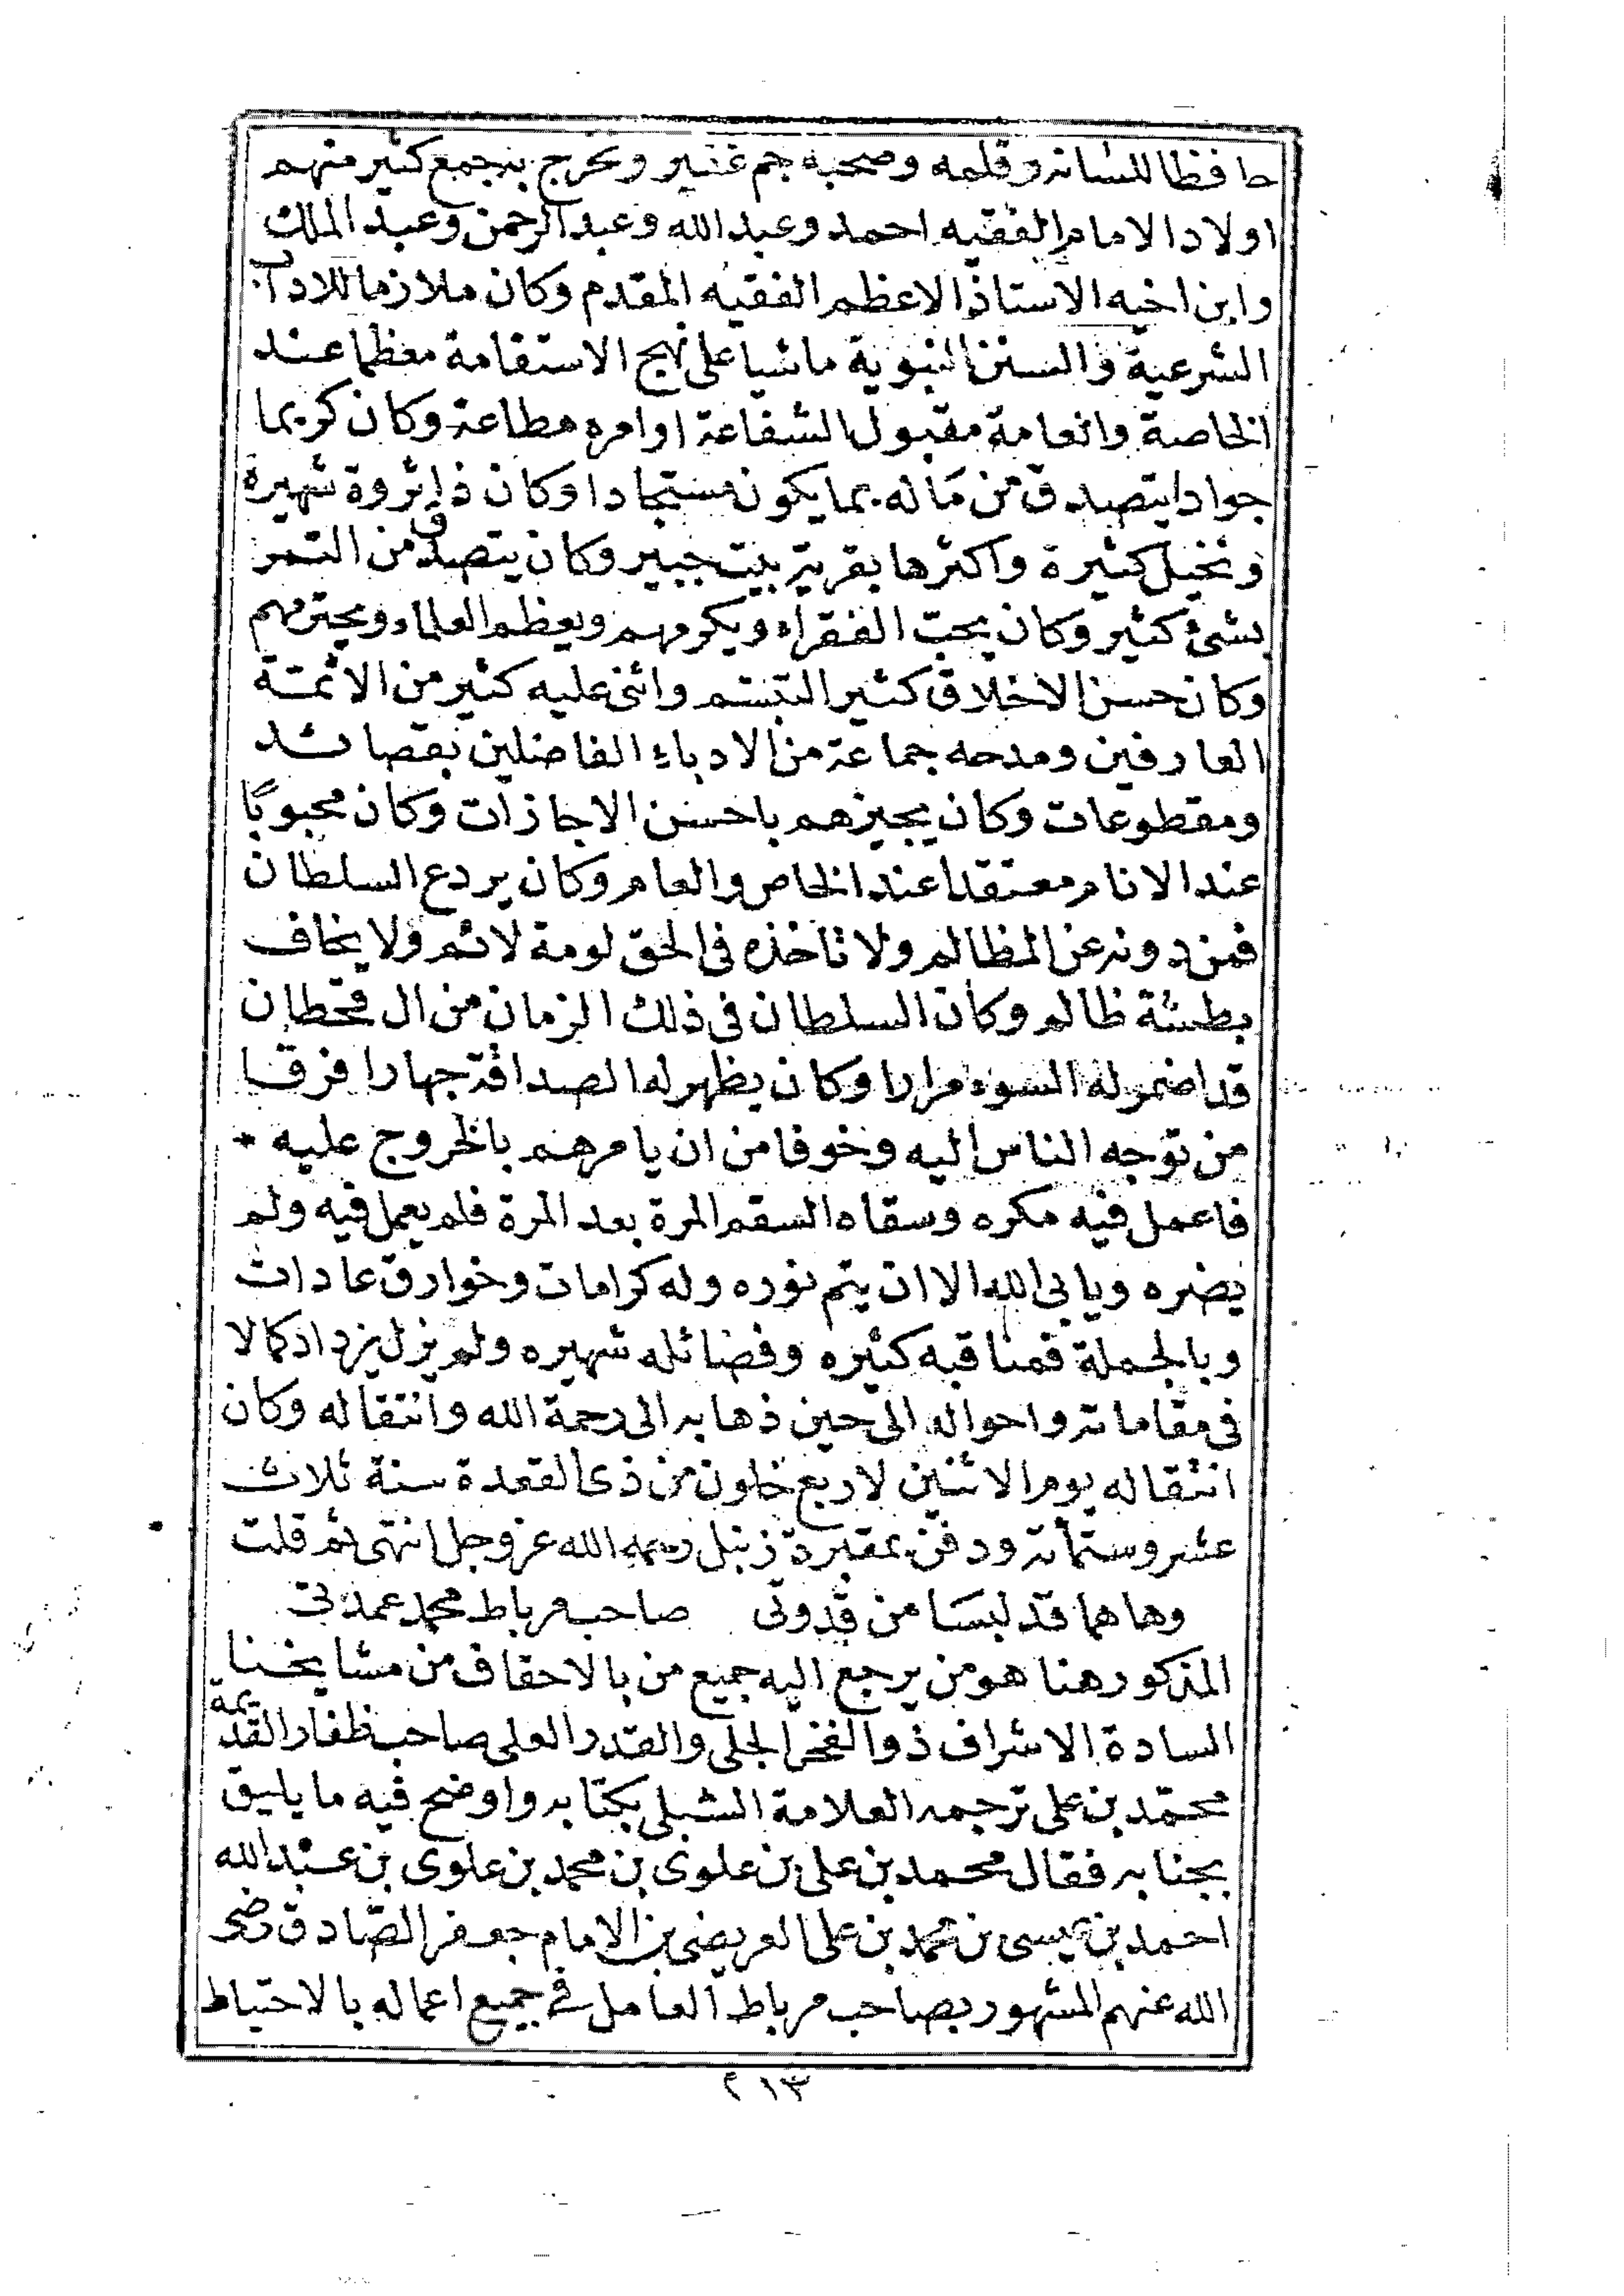 حافظا للسانه وقلمه وصحبه جم غفير وتخرج به جمع كثير منهم
اولاد الامام الفقيه احمد وعبد الله وعبد الرحمن وعبد الملك
وابن اخيه الاستاذ الاعظم الفقيه المقدم وكان ملازما للاداب
الشرعية والسنن النبوية ماشيا على نهج الاستقامة معظما عند
الخاصة والعامة مقبول الشفاعة اوامره مطاعة وكان كريما
جوادا يتصدق من ماله بما يكون مستجادا وكان ذا ثروة شهيرة
ونخيل كثيرة واكثرها بقرية بيت جبير وكان يتصدق من التمر
بشئ كثير وكان يحب الفقراء ويكرمهم ويعظم العلماء ويحترمهم
وكان حسن الاخلاق كثير التبسم واثنى عليه كثير من الائمة
العارفين ومدحه جماعة من الادباء الفاضلين بقصائد
ومقطوعات وكان يجيزهم باحسن الاجازات وكان محبوبًا
عند الانام معتقدا عند الخاص والعام وكان يردع السلطان
فمن دونه عن المظالم ولا تاخذه في الحق لومة لائم ولا يخاف
بطشة ظالم وكان السلطان في ذلك الزمان من ال قحطان
قد اضمر له السوء مرارا وكان يظهر له الصداقة جهارا فرقا
من توجه الناس اليه وخوفا من ان يامرهم بالخروج عليه *
فاعمل فيه مكره وسقاه السقم المرة بعد المرة فلم يعمل فيه ولم
يضره ويابى الله الا ان يتم نوره وله كرامات وخوارق عادات
وبالجملة فمناقبه كثيره وفضائله شهيره ولم يزل يزداد كمالا
في مقاماته واحواله الى حين ذهابه الى رحمة الله وانتقاله وكان
انتقاله يوم الاثنين لاربع خلون من ذى القعدة سنة ثلاث
عشر وستمأة ودفن بمقبرة زنبل رحمه الله عز وجل انتهى ثم قلت
وهاهما قد لبسا من قدوتى صاحب مرباط محمد عمدتى
المذكور هنا هو من يرجع اليه جميع من بالاحقاف من مشايخنا
السادة الاشراف ذو الفخر الجلى والقدر العلى صاحب ظفار القديمة
محمّد بن على ترجمه العلامة الشبلى بكتابه واوضح فيه ما يليق
بجنابه فقال محمد بن على بن علوى بن محمد بن علوى بن عبد الله
احمد بن عيسى بن محمد بن على العريضى بن الامام جعفر الصّادق رضى
الله عنهم المشهور بصاحب مرباط العامل في جميع اعماله بالاحتياط
٢١٣